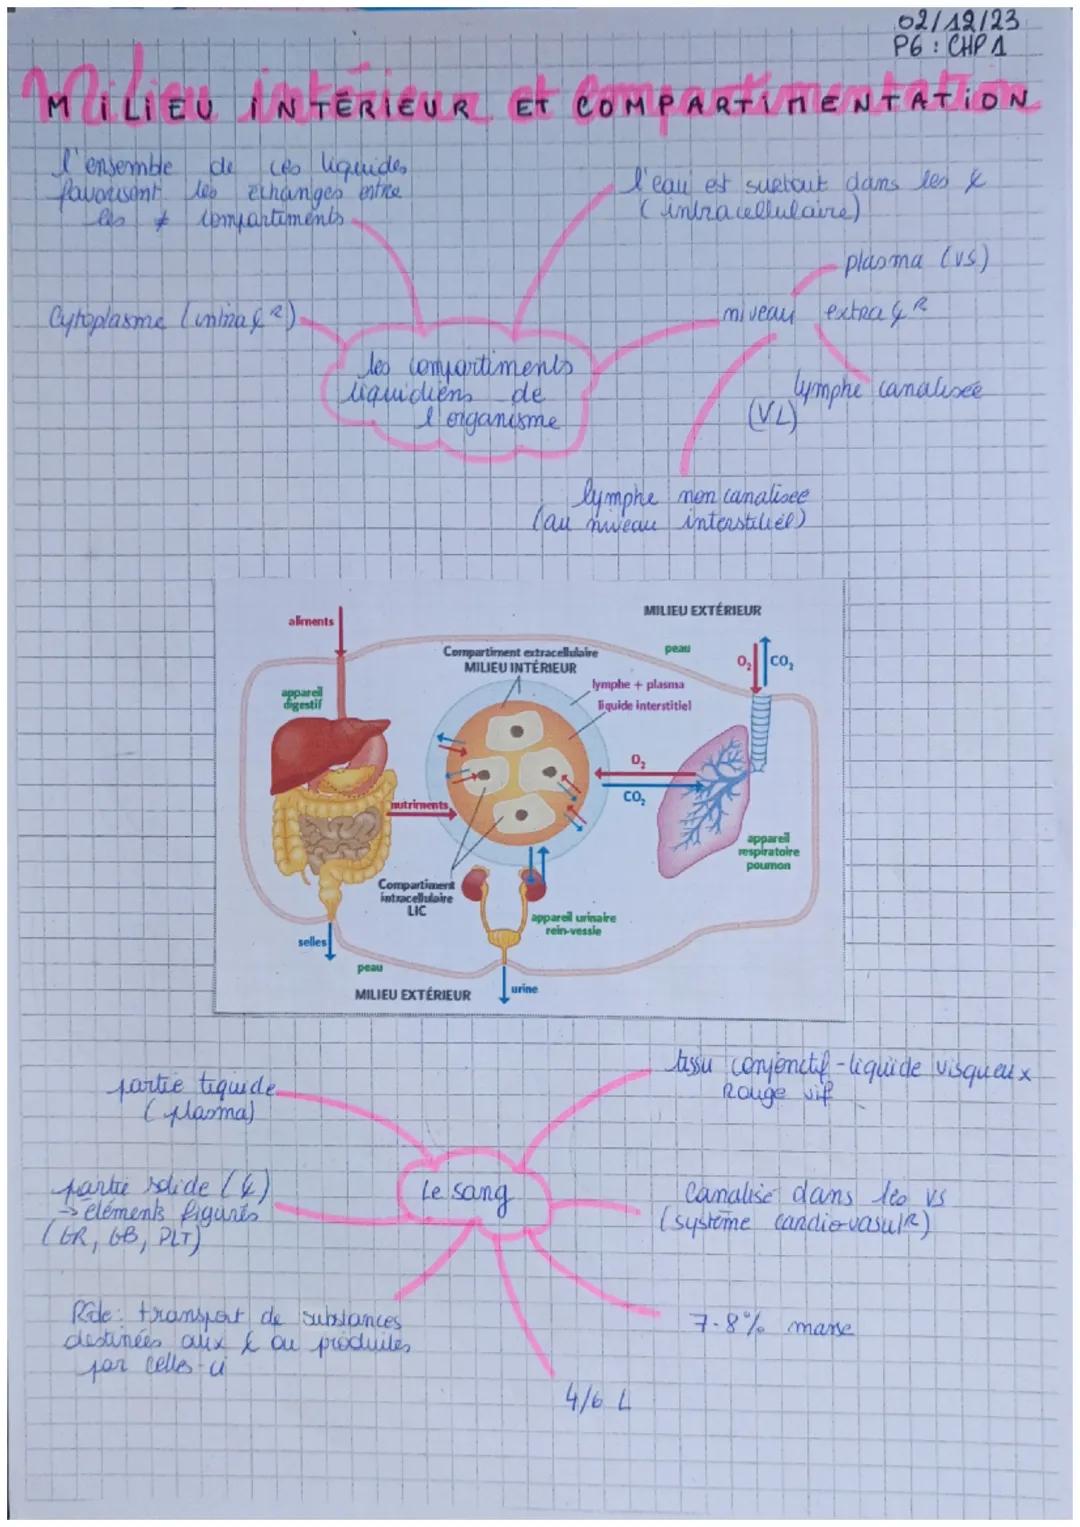 02/12/23
P6 : CHP 1
Milieu intérieur et compartimentation
MILIEU INTÉRIEUR ET COMPARTIMENTATION
l'ensemble de ces liquides
favorisent les échanges entre
les ≠ compartiments
l'eau est surtout dans les
(intracellulaire)
plasma (VS)
Cytoplasme (intra
niveau extra
les compartiments
liquidiens de
l'organisme
lymphe canalisée
(VL)
lymphe non canalisée
(au niveau interstitiel)
MILIEU EXTÉRIEUR
aliments
peau
Compartiment extracellulaire
MILIEU INTÉRIEUR
O₂
CO₂
appareil
digestif
lymphe + plasma
liquide interstitiel
O₂
CO₂
nutriments
appareil
respiratoire
poumon
Compartiment
intracellulaire
LIC
appareil urinaire
rein-vessie
selles
peau
MILIEU EXTÉRIEUR
urine
tissu conjonctif - liquide visqueux
Rouge vif
partie liquide
(plasma)
partie solide
→ éléments figurés
(GR, GB, PLT)
Le sang
Canalisé dans les VS
(système cardio-vasculR)
Rôle : transport de substances
destinées aux ou produites
par celles-ci
7-8% masse
4/6 L